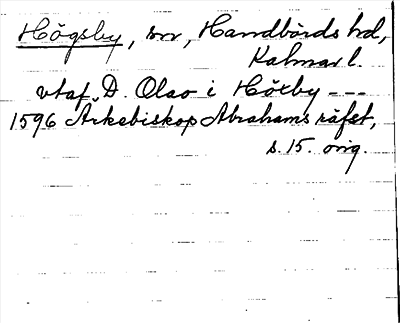 Högsby, sn, Handbörds hd,
Kalmar l.
vtaf D. Olao i Höxby ---
1596 Ärkebiskop Abrahams räfst,
s. 15. orig.